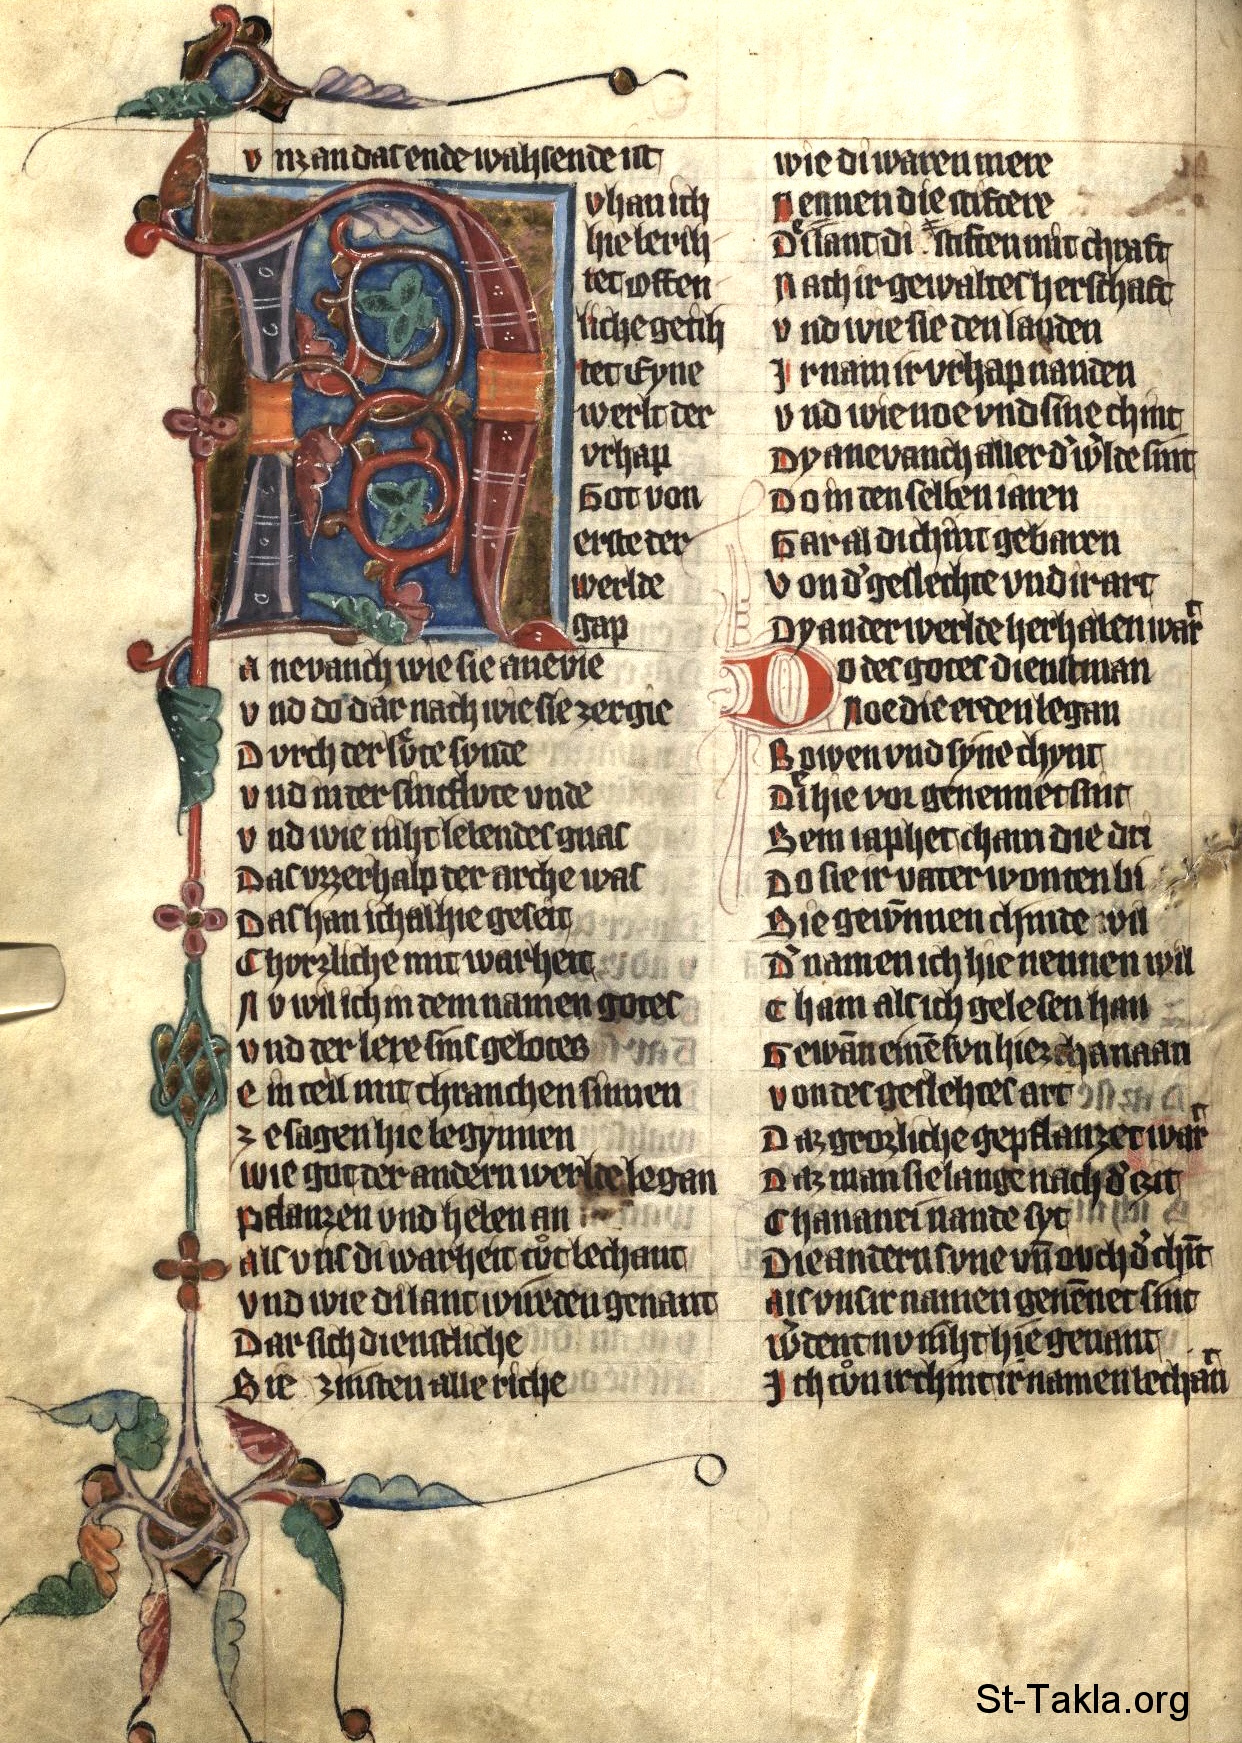 vnz an daz ende wahsende ist
Nv han ich
hie berih
tet offen
liche getih
tet Eyne
werlt der
vrhap
Got von
erste der
werlde
gap
anevanch wie sie anevie
vnd do dar nach wie sie zergie
Dvrch der svͦte synde
vnd in der sintflvte vnde
vnd wie niht lebendes gnas
Das vzzerhalp der arche was
Das han ich alhie geseit
Chvrzliche mit warheit
Nv wil ich in dem namen gotes
vnd der lere sins gebotes
ein teil mit chranchen sinnen
ze sagen hie begynnen
wie got der andern werlde began
pflanzen vnd helen an
als vns di warheit tvͦt bechant
vnd wie di lant wurden genant
Dar sich dienstliche
Sie zinsten alle riche
wie di waren mere
Nennen die stiftere
Di lant di stiften mit chraft
Nach ir gewaltes herschaft
vnd wie sie den landen
Ir nam ir vrhap nanden
vnd wie noe vnd sine chint
Dy anevanch aller d' w'lde sint
Do in den selben iaren
Gar al di chint gebaren
Von d' geslechte vnd ir art
Dy ander werlde her halen wart
Do des gotes dienstman
Noe die erden began
Bowen vnd syne chynt
Di hie vor genennet sint
Sem iaphet cham die dri
Do sie ir vater wonten bi
Sie gewn̄nen chinde vil
D' namen ich hie nennen wil
Cham als ich gelesen han
Gewan einē svn hiez chanaan
von des geslehtes art
Daz grozliche gepflanzet wart
Daz man sie lange nach d' zit
Chananei nande syt
Die andern svne vn̄ ovch d' chīt
als vns ir namen genēnet sint
w'dent nv niht hie genant
Ich tvͦn ir chint ir namen bechant
St-Takla.org